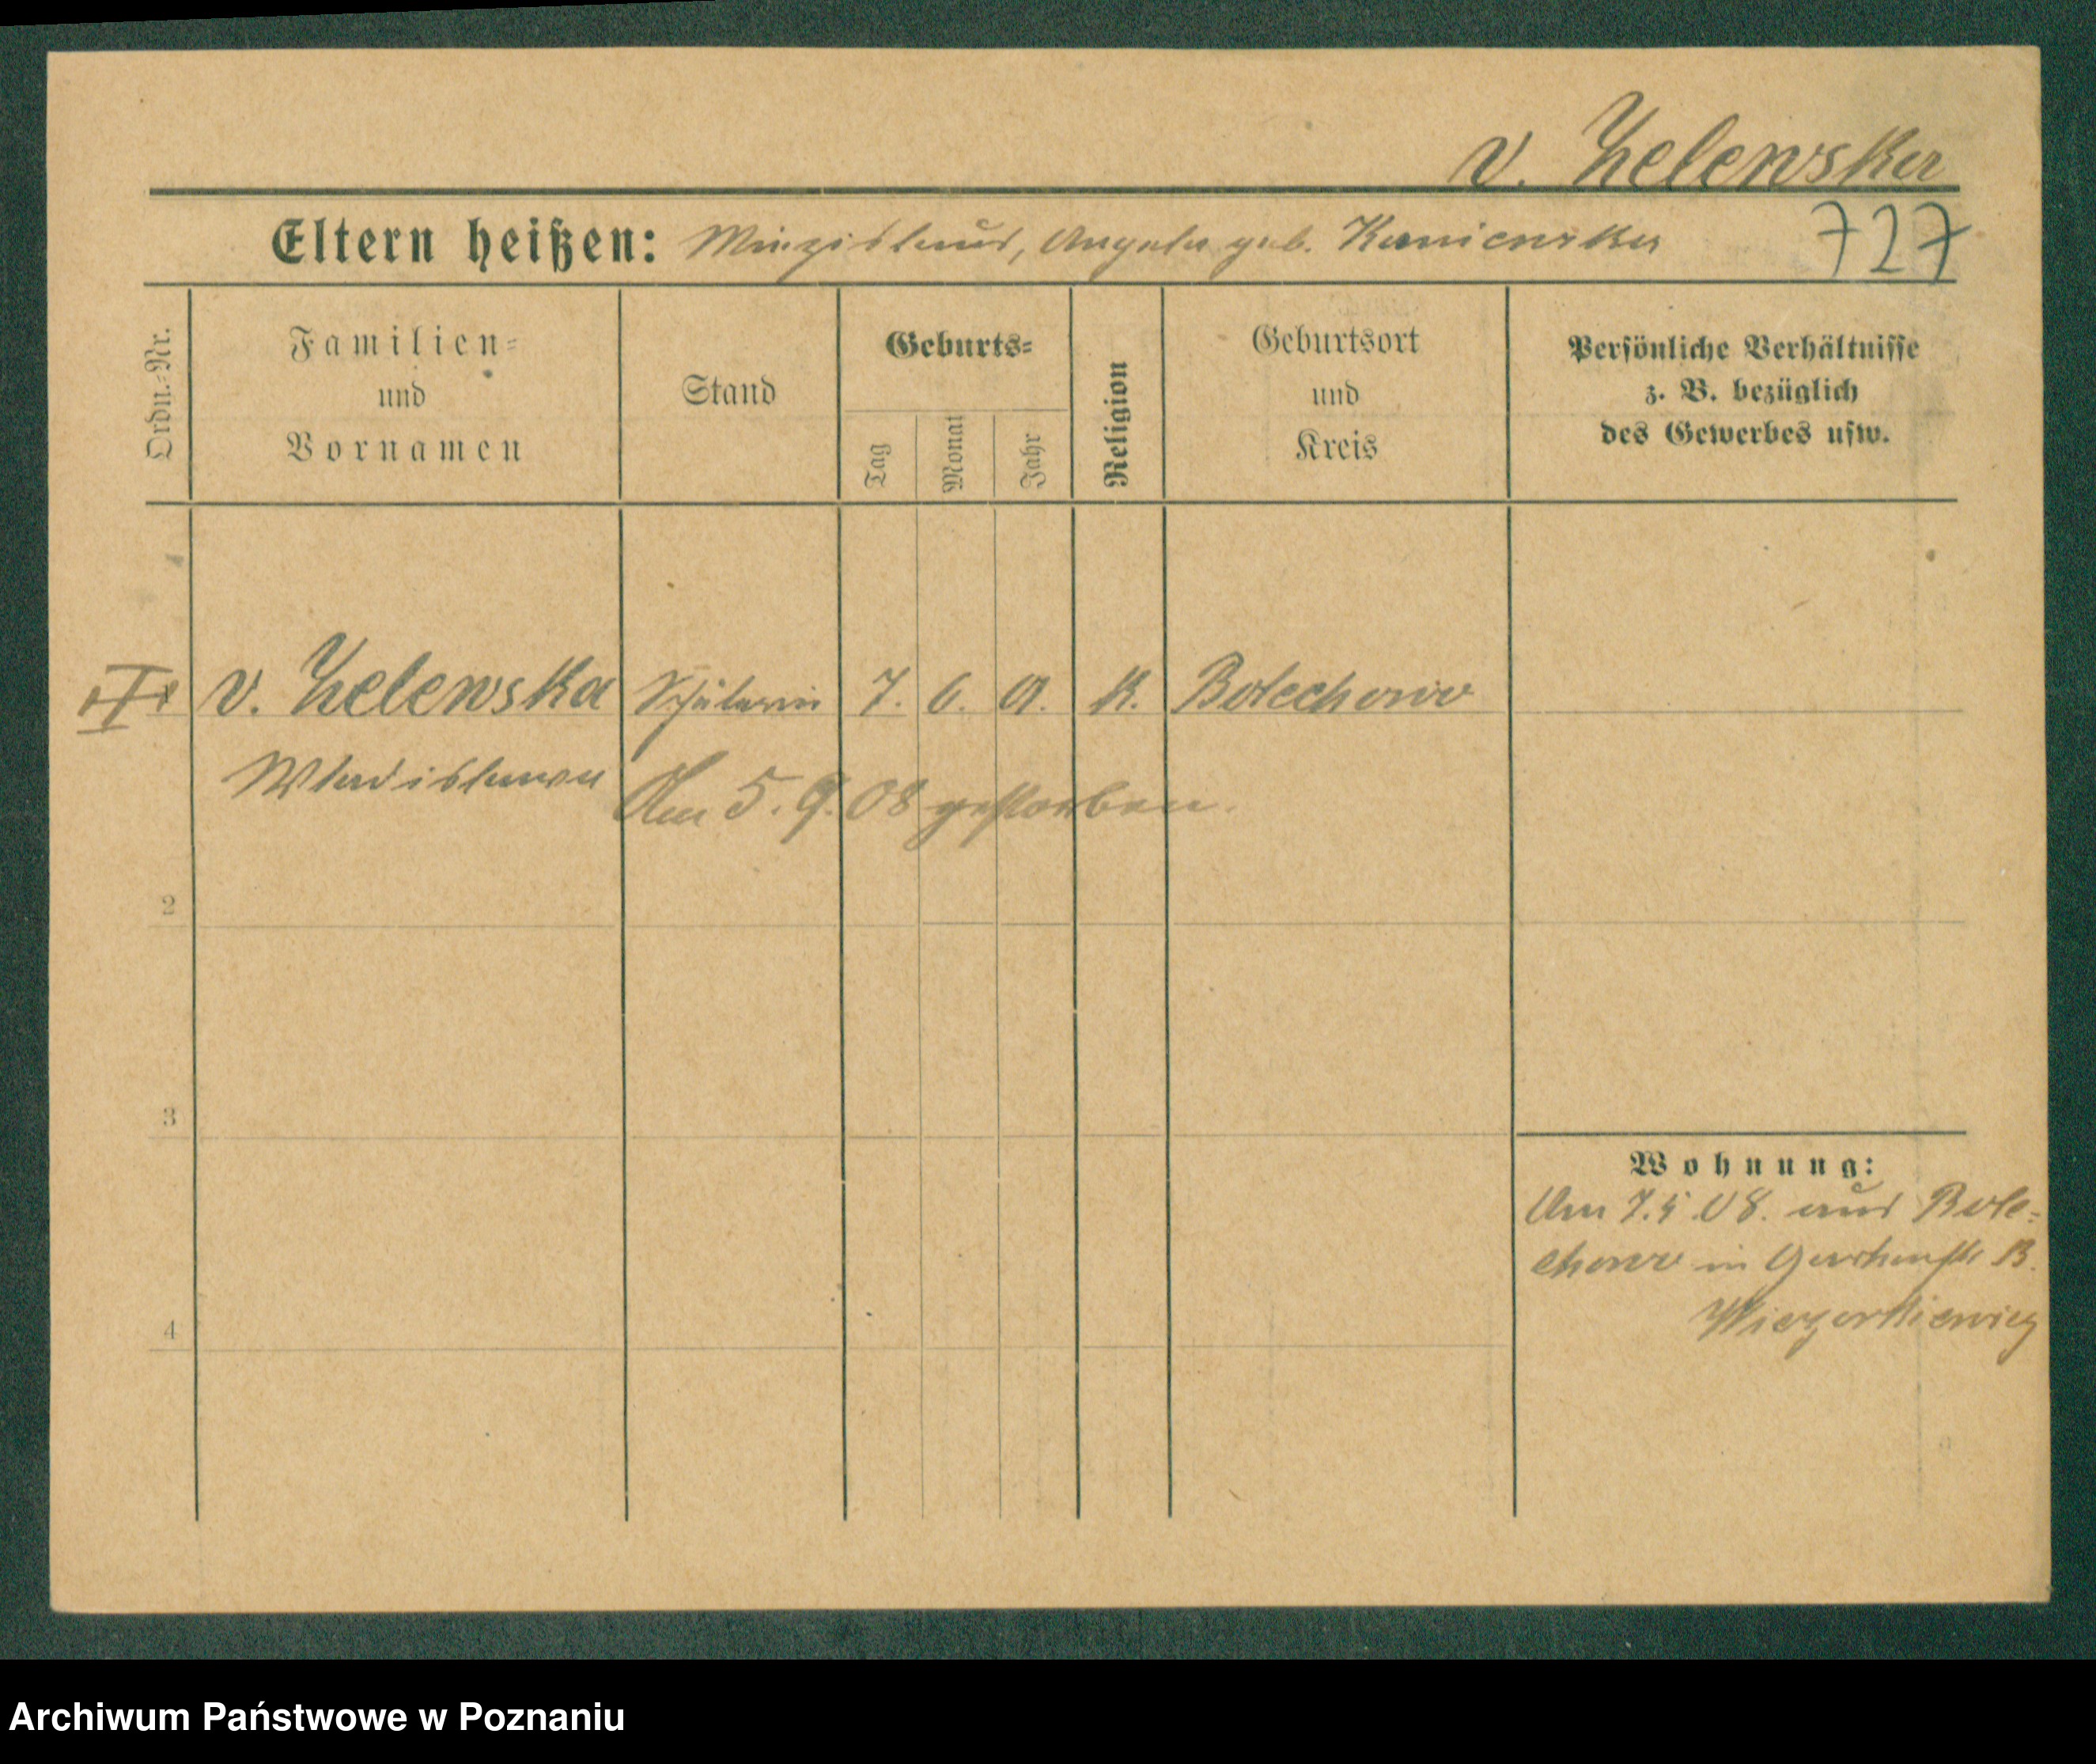 v. Zelewska
Eltern heißen: Miezislaus, Angela geb. Kamienska 727
Ordn.-Nr.
Familien-
und
Vornamen
Stand
Geburts-
Tag
Monat
Jahr
Religion
Geburtsort
und
Kreis
Persönliche Verhältnisse
z. B. bezüglich
des Gewerbes usw.
v. Zelewska Schülerin 7. 6. K. Bolechowo
Wladislawa
Am 5. 9. 08 gestorben.
2
3
4
Wohnung:
Am 7.5.08. aus Bole-
chowo in
Archiwum Państwowe w Poznaniu